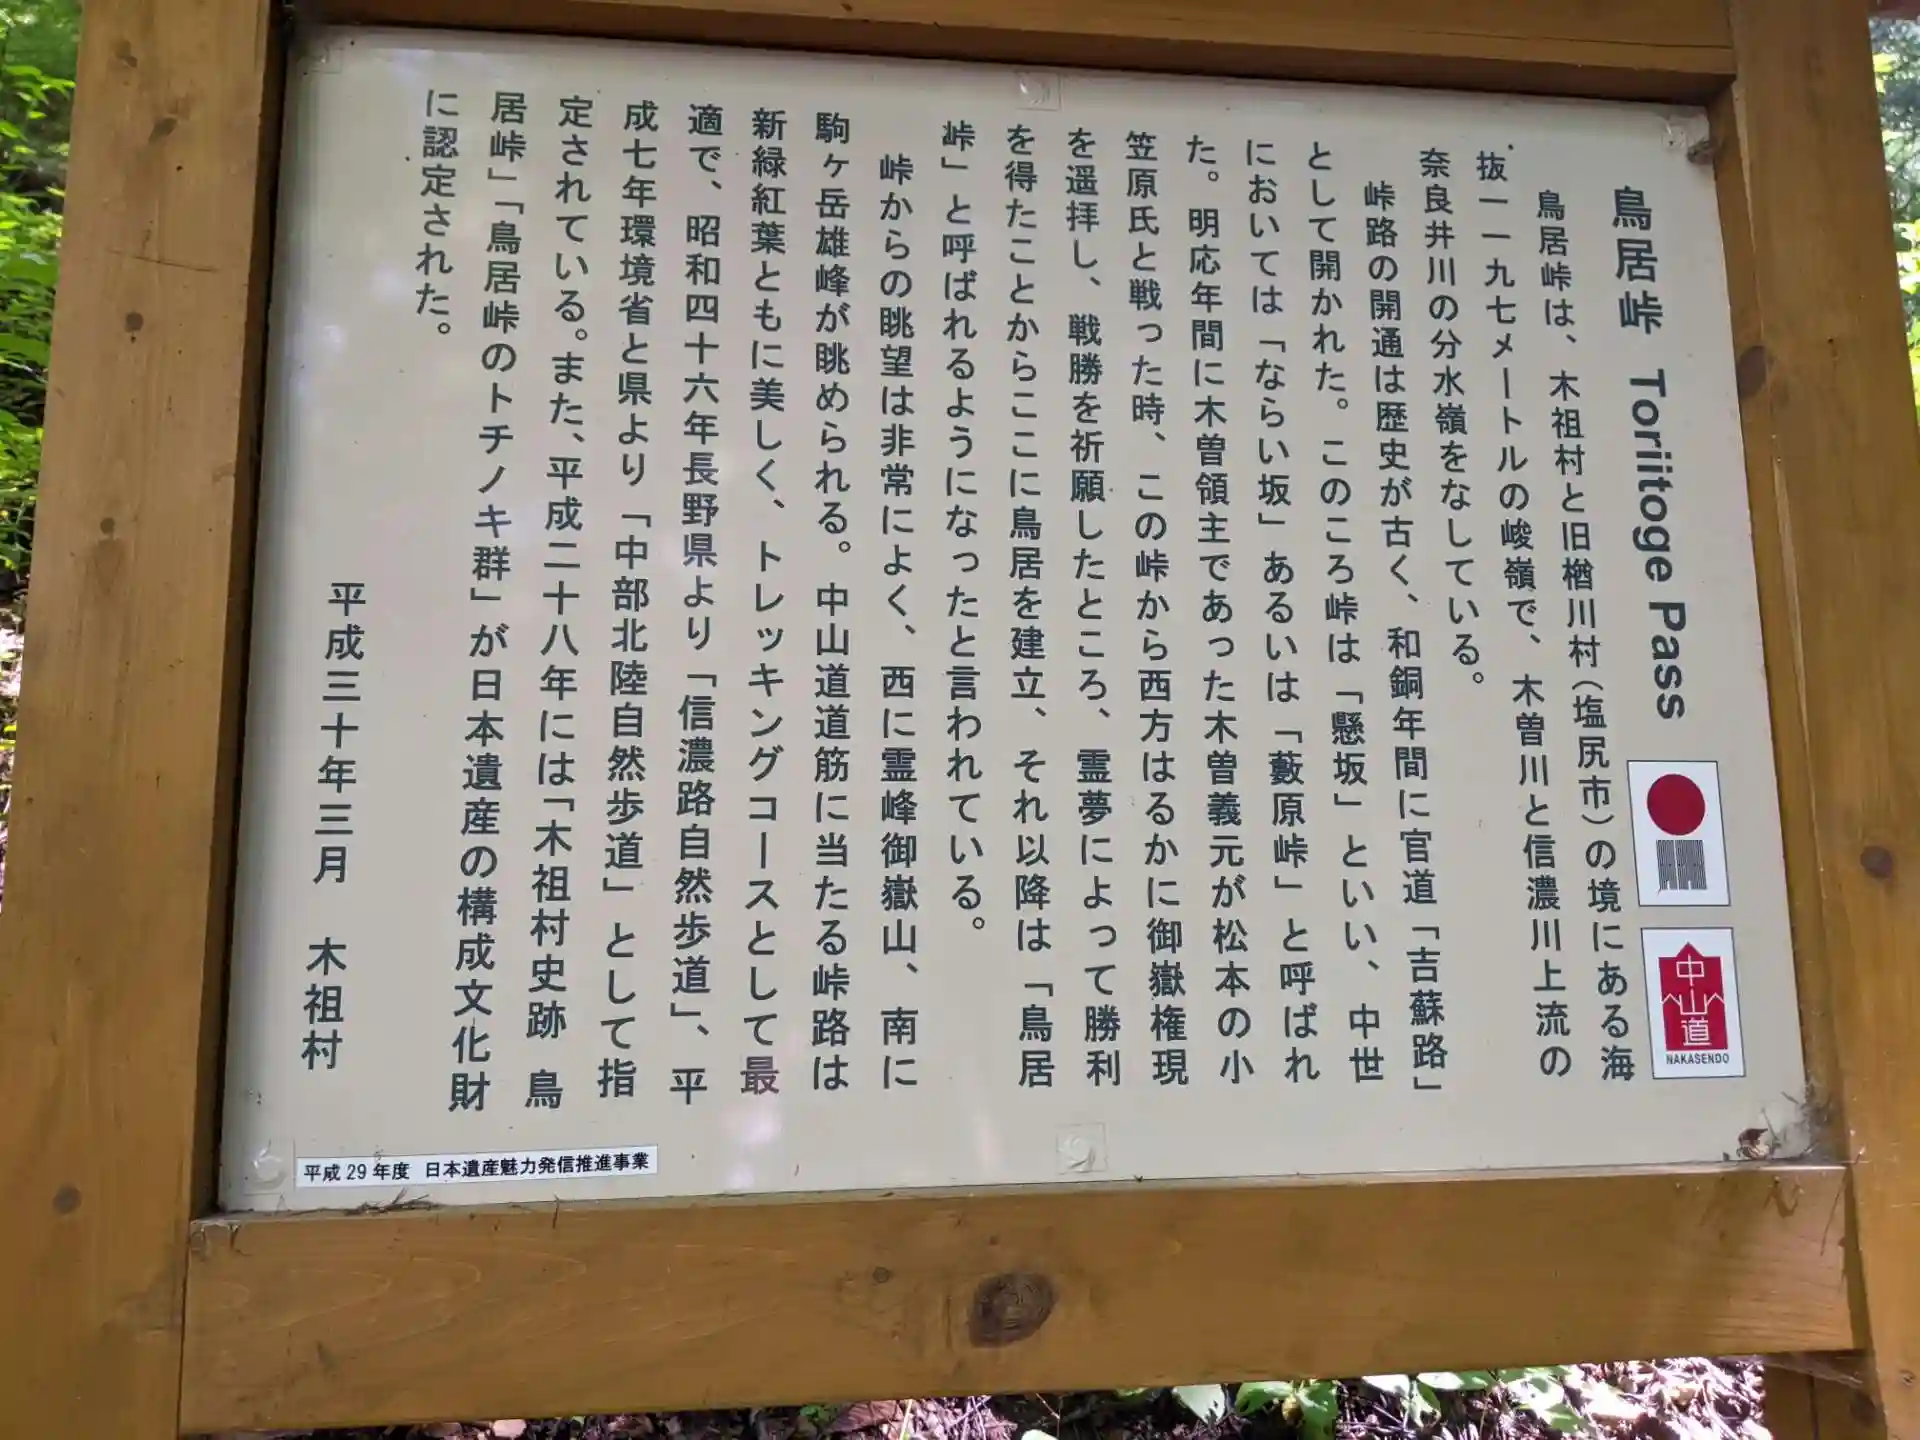 鳥居峠 Toriitoge Pass
鳥居峠は、木祖村と旧楢川村(塩尻市)の境にある海
抜一一九七メートルの峻嶺で、木曽川と信濃川上流の
奈良井川の分水嶺をなしている。
峠路の開通は歴史が古く、和銅年間に官道「吉蘇路」
として開かれた。このころ峠は「懸坂」といい、中世
においては「ならい坂」あるいは「藪原峠」と呼ばれ
た。明応年間に木曽領主であった木曽義元が松本の小
笠原氏と戦った時、この峠から西方はるかに御嶽権現
を遥拝し、戦勝を祈願したところ、霊夢によって勝利
を得たことからここに鳥居を建立、それ以降は「鳥居
峠」と呼ばれるようになったと言われている。
峠からの眺望は非常によく、西に霊峰御嶽山、南に
駒ヶ岳雄峰が眺められる。中山道道筋に当たる峠路は
新緑紅葉ともに美しく、トレッキングコースとして最
適で、昭和四十六年長野県より「信濃路自然歩道」、平
成七年環境省と県より「中部北陸自然歩道」として指
定されている。また、平成二十八年には「木祖村史跡 鳥
居峠」「鳥居峠のトチノキ群」が日本遺産の構成文化財
に認定された。
平成三十年三月 木祖村
中山道
NAKASENDO
平成29年度 日本遺産魅力発信推進事業